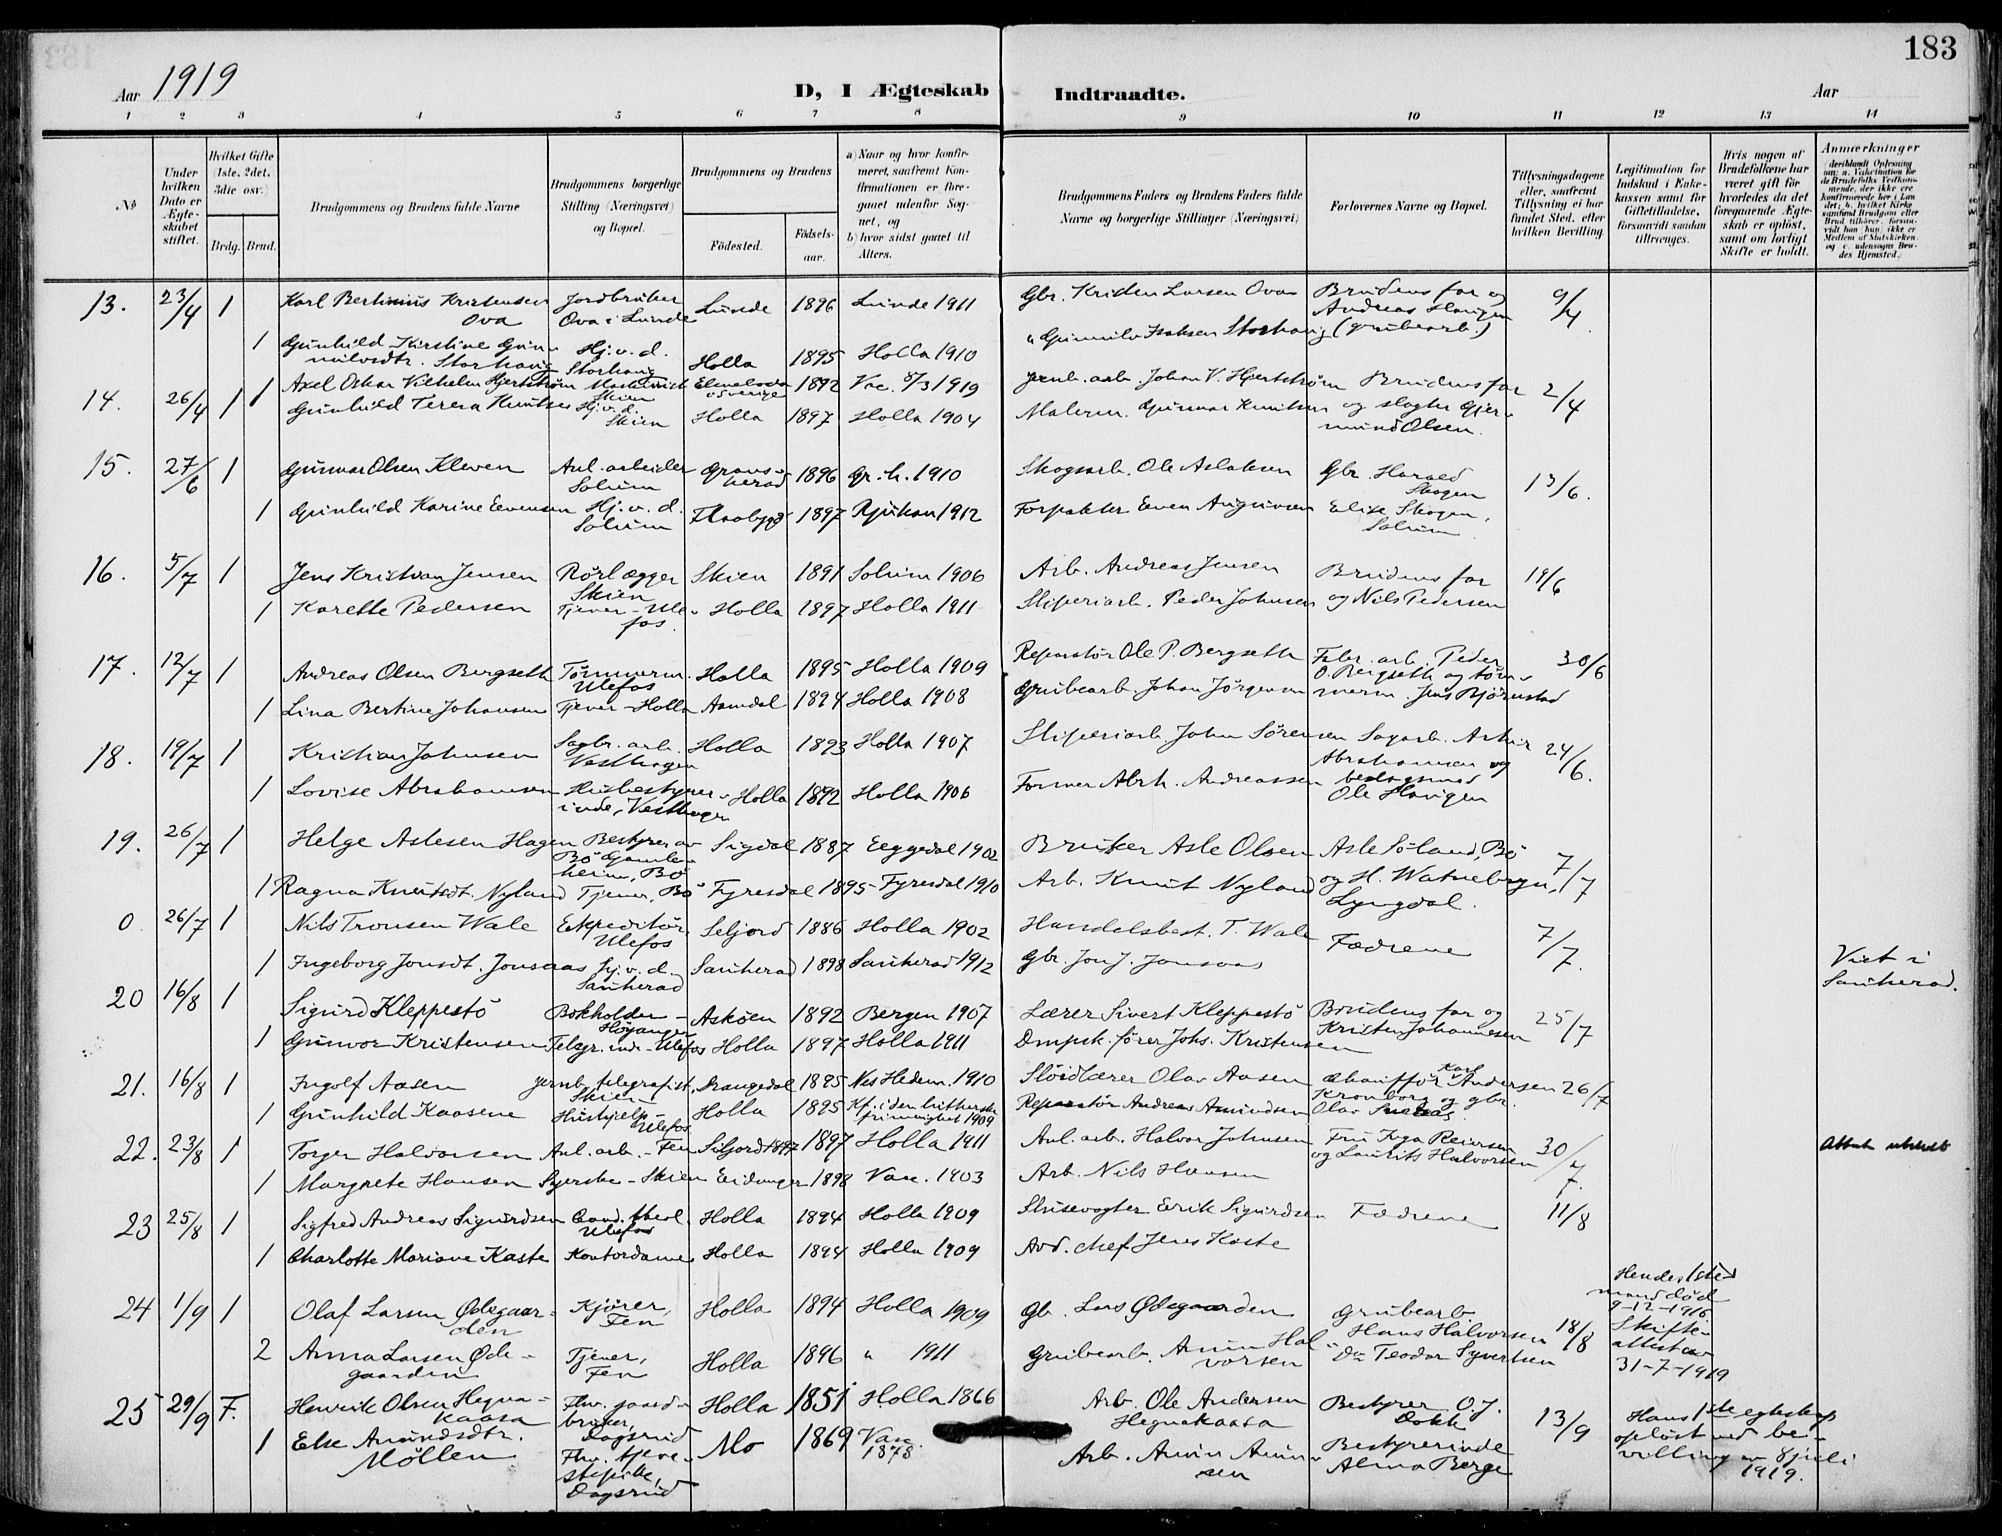 183
Aar 1919
D, I Ægteskab Indtraadte.
Aar
1 2 3 4 5 6 7 8 9 10 11 12 13 14
No
Under hvilken Dato er Ægteskabet stiftet.
Hvilket Gifte (1ste, 2det, 3die osv.)
Brdg. Brud.
Brudgommens og Brudens fulde Navne
Brudgommens borgerlige Stilling (Næringsvei) og Bopæl.
Brudgommens og Brudens
Födested.
Födselsaar.
a) Naar og hvor konfirmeret, saafremt Konfirmationen er foregaaet udenfor Sognet, og
b) hvor sidst gaaet til Alters.
Brudgommens Faders og Brudens Faders fulde Navne og borgerlige Stillinger (Næringsvei)
Forlovernes Navne og Bopæl.
Tillysningsdagene eller, saafremt Tillysning ei har fundet Sted, efter hvilken Bevilling.
Legitimation for Indskud i Enkekassen samt for Giftetilladelse, forsaavidt saadan tiltrænges.
Hvis nogen af Brudefolkene har været gift för hvorledes da det foregaaende Ægteskab er oplöst, samt om lovligt Skifte er holdt.
Anmærkninger
13. 23/4 1 Karl Bertinius Kristensen Ova Jordbruker Ova i Lunde Lunde 1896 Lunde 1911 Gbr. Kristen Larsen Ova Brudens far og Andreas Haugen (grubearb.) 9/4
1 Gunhild Kirstine Gunnulvsdtr. Storhaug Hj.v.d. Storhaug Holla 1895 Holla 1910 " Gunnulv Isaksen Storhaug
14. 26/4 1 1 Axel Oskar Vilhelm Hjertström Maskinist Skien 1892 Vac. 8/3 1919 Jernb. arb. Johan V. Hjertström Brudens far 2/4
Gunhild Terera Knutsen Hj.v.d. Skien Holla 1897 Holla 1904 Malerm. Gunnar Knutsen og slagter Gjermund Olsen.
15. 27/6 1 Gunnar Olsen Kleven Anl. arbeider Solum Gransherad 1896 Gr.h. 1910 Skogsarb. Ole Aslaksen Gbr. Harald Skogen 13/6.
1 Gunhild Karine Evensen Hj.v.d. Solum Flaabygd 1897 Rjukan 1912 Forpakter Even Elise Skogen, Solum
16. 5/7 1 Jens Kristian Jensen Rörlægger Skien Skien 1891 Solum 1906 Arb. Andreas Jensen Brudens far 19/6
1 Karette Pedersen Tjener - Ulefos. Holla 1897 Holla 1911 Sliperiarb. Peder Johnsen og Nils Pedersen
17. 12/7 1 Andreas Olsen Bergseth Tömmerm. Ulefos Holla 1895 Holla 1909 Reparatör Ole P. Bergseth Fabr. arb. Peder O. Bergseth og tömmerm. Jens Bjørnstad 30/6
1 Lina Bertine Johansen Tjener - Holla Aamdal 1894 Holla 1908 Grubearb. Johan Jörgensen
18. 19/7 1 Kristian Johnsen Sagbr. arb. Vesthagen Holla 1893 Holla 1907 Sliperiarb. John Sörensen Sagarb. Abrahamsen og Ole Haugen 24/6.
1 Lovise Abrahamsen Husbestyrerinde, Vesthagen Holla 1892 Holla 1906 Former Abrh. Andreassen
19. 26/7 1 Helge Aslesen Hagen Bestyrer av Bö Gamleheim, Bö Sigdal 1887 Eeggedal 1902 Bruker Asle Olsen Asle Söland, Bö 7/7
1 Ragna Knutsdt. Nyland Tjener, Bö Fyresdal 1895 Fyresdal 1910 Arb. Knut Nyland og H. Lyngdal.
0 26/7 1 Nils Tronsen Wale Ekspeditör Ulefos Seljord 1886 Holla 1902 Handelsbest. T. Wale Fædrene 7/7.
1 Ingeborg Jonsdt. Jonsaas Hj.v.d. Sauherad Sauherad 1898 Sauherad 1912 Gbr. Jon J. Jonsaas Viet i Sauherad.
20 16/8 1 Sigurd Kleppestö Bokholder - Höyanger Asköen 1892 Bergen 1907 Lærer Sivert Kleppestö Brudens far og Kristen Johannesen 25/7
1 Gunvor Kristensen Telegr. ind. - Ulefos Holla 1897 Holla 1911 Dmpsk. förer Johs. Kristensen
21. 16/8 1 Ingolf Aasen Jernb. telegrafist, Skien - Drangedal 1895 Nes Hedem. 1910 Slöidlærer Olav Aasen Chaufför Karl Andersen Kronborg og gbr. Olav 26/7
1 Gunhild Kaasene Hushjelp - Ulefos Holla 1895 Kf. i den lutherske frimenighet 1909 Reparatör Andreas Amundsen
22. 23/8 1 Torger Halvorsen Anl. arb. - Fen Seljord 1897 1897 Holla 1911 Anl. arb. Halvor Johnsen Fru Inga Reiersen og Laurits Halvorsen 30/7.
1 Margrete Hansen Syerske - Skien Eidanger 1898 Vac. 1903 Arb. Nils Hansen
23 25/8 1 Sigfred Andreas Sigurdsen Cand. theol. Ulefos Holla 1894 Holla 1909 Slusevogter Eerik Sigurdsen Fædrene 11/8
1 Charlotte Mariane Kaste Kontordame Holla 1894 Holla 1909 Avd. chef Jens Kaste
24 1/9 1 Olaf Larsen Ødegaarden Kjörer, Fen Holla 1894 Holla 1909 Gb. Lars Ødegaarden Grubearb. Hans Halvorsen 18/8
2 Anna Larsen Ødegaarden Tjener, Fen Holla 1896 " 1911 Grubearb. Halvorsen Do Teodor Syvertsen
Hendes 1ste mand död 9-12-1916 Skifteattest av 31-7-1919
25 29/9 F. Henrik Olsen Hegnakaasa Fhv. gaardbruker, Dagsrud Holla 1851 Holla 1866 Arb. Ole Andersen Hegnakaasa Bestyrer O.J. Dokk 13/9
1 Else Amundsdtr. Möllen Fhv. tjenestepike, Dagsrud Mo 1869 Vac. 1878 Arb. Bestyrerinde Alma Berge
Hans 1ste egteskap oplöst ved bevilling av 8 juli 1919.